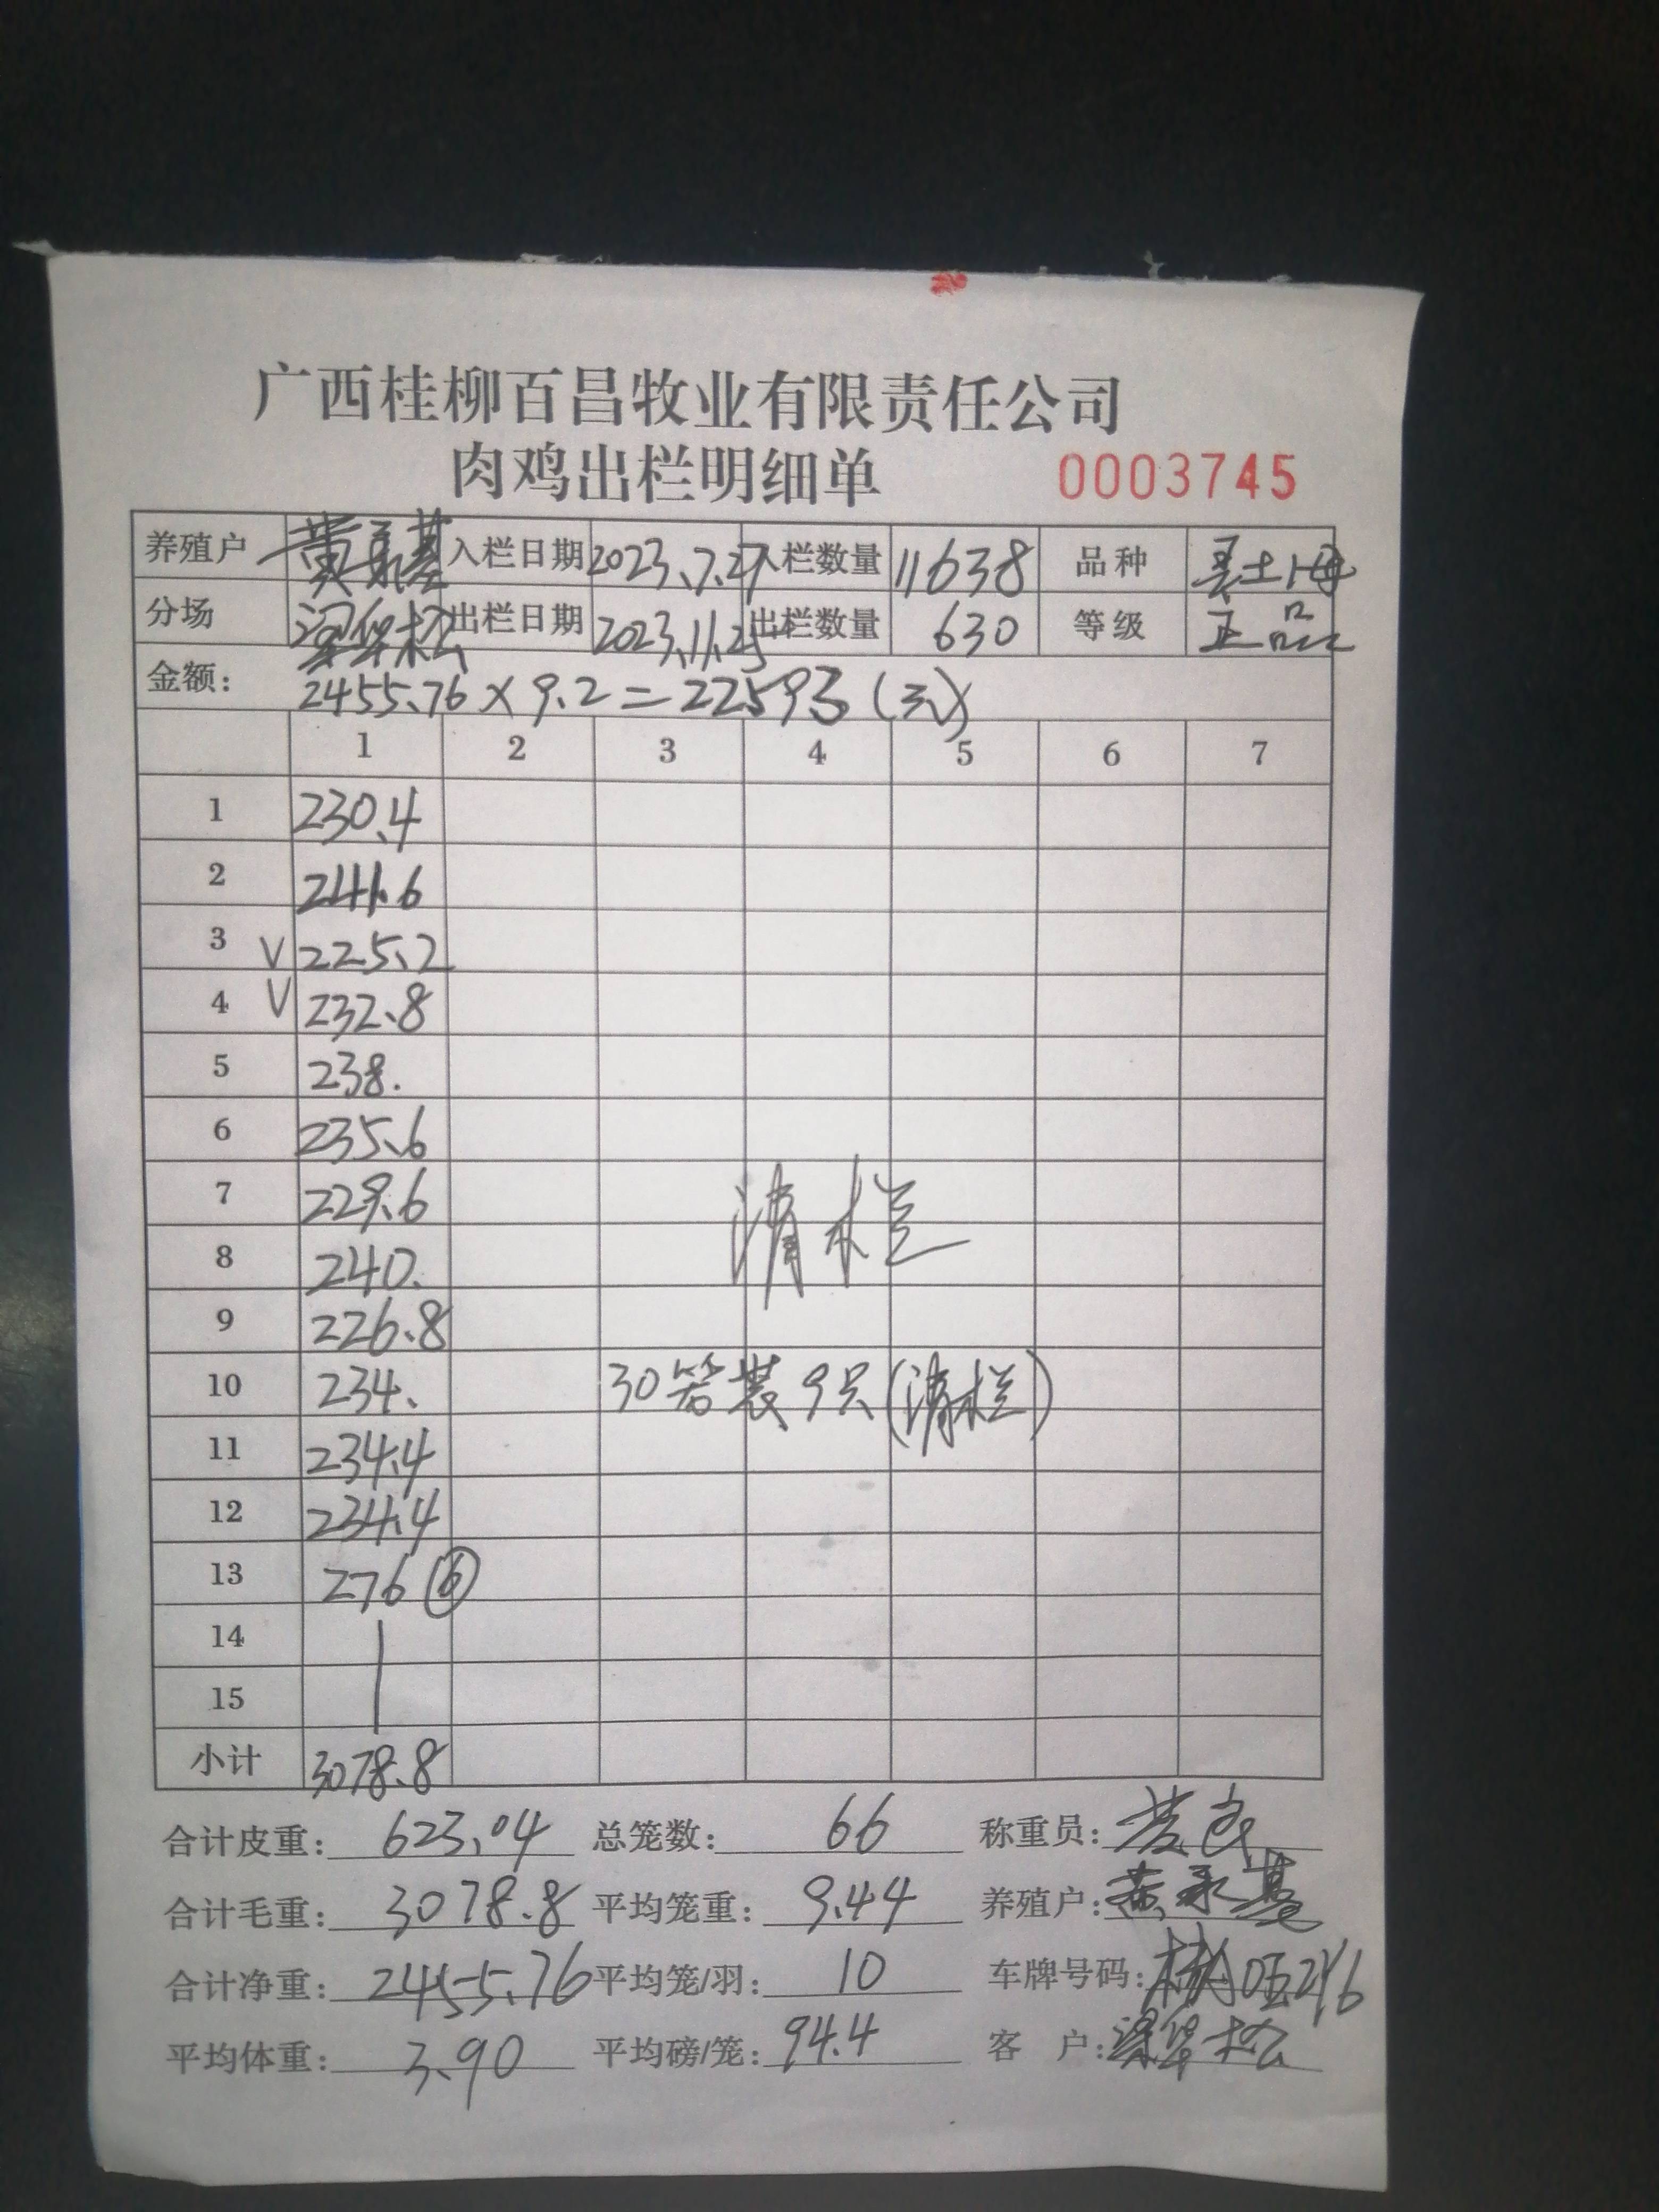 广西桂柳百昌牧业有限责任公司
肉鸡出栏明细单 0003745
养殖户 黄永基 入栏日期 2023.7.27 入栏数量 11638 品种
分场 梁华松 出栏日期 2023.11.25 出栏数量 630 等级 正品
金额: 2455.76 × 9.2 = 22593 (元)
1 2 3 4 5 6 7
1 230.4
2 241.6
3 V 225.2
4 V 232.8
5 238.
6 235.6
7 229.6
清栏
8 240.
9 226.8
10 234. 30笼装9只(清栏)
11 234.4
12 234.4
13 276 ⑥
14
15
小计 3078.8
合计皮重: 623.04 总笼数: 66 称重员:
合计毛重: 3078.8 平均笼重: 9.44 养殖户: 黄永基
合计净重: 2455.76 平均笼/羽: 10 车牌号码:
平均体重: 3.90 平均磅/笼: 94.4 客 户: 梁华松